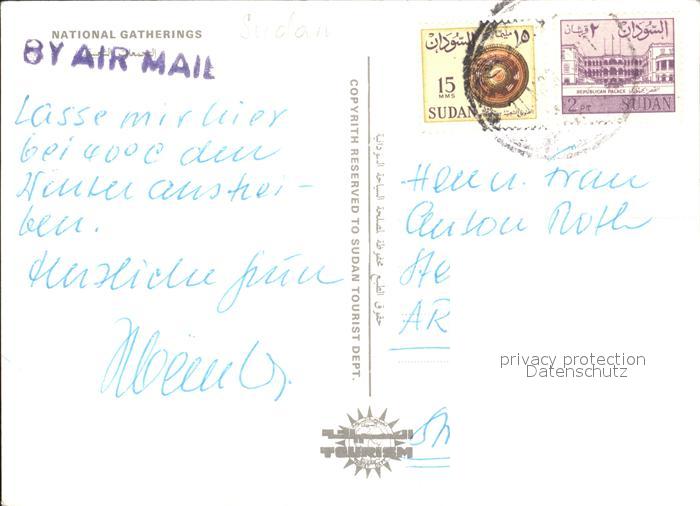 NATIONAL GATHERINGS
Sudan
BY AIR MAIL
Lasse mir hier
bei 40°C den
Winter austrei-
ben.
Herzliche Grüße
السودان
١٥
مليمات
15
MMS
SUDAN
٢ قرشان
السودان
REPUBLICAN PALACE
2 PT
SUDAN
COPYRITH RESERVED TO SUDAN TOURIST DEPT.
حقوق الطبع محفوظة لمصلحة السياحة السودانية
Herrn u. Frau
Anton Roth
Ste
AR
privacy protection
Datenschutz
TOURISM